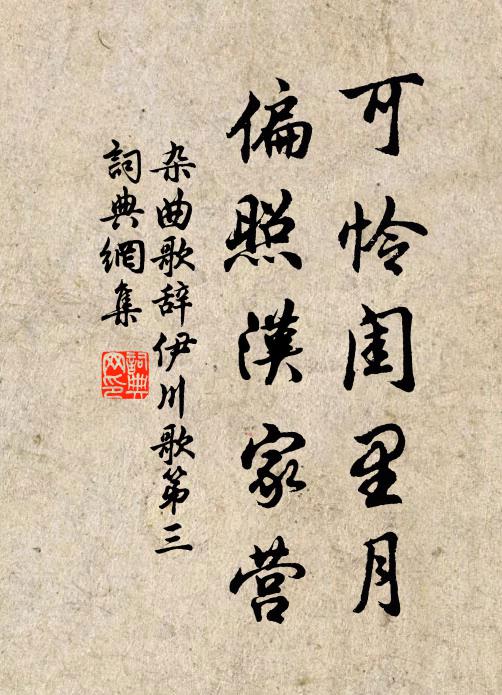 可怜闺里月
偏照漢家营
杂曲歌辞伊川歌第三
詞典網集
詞典网印